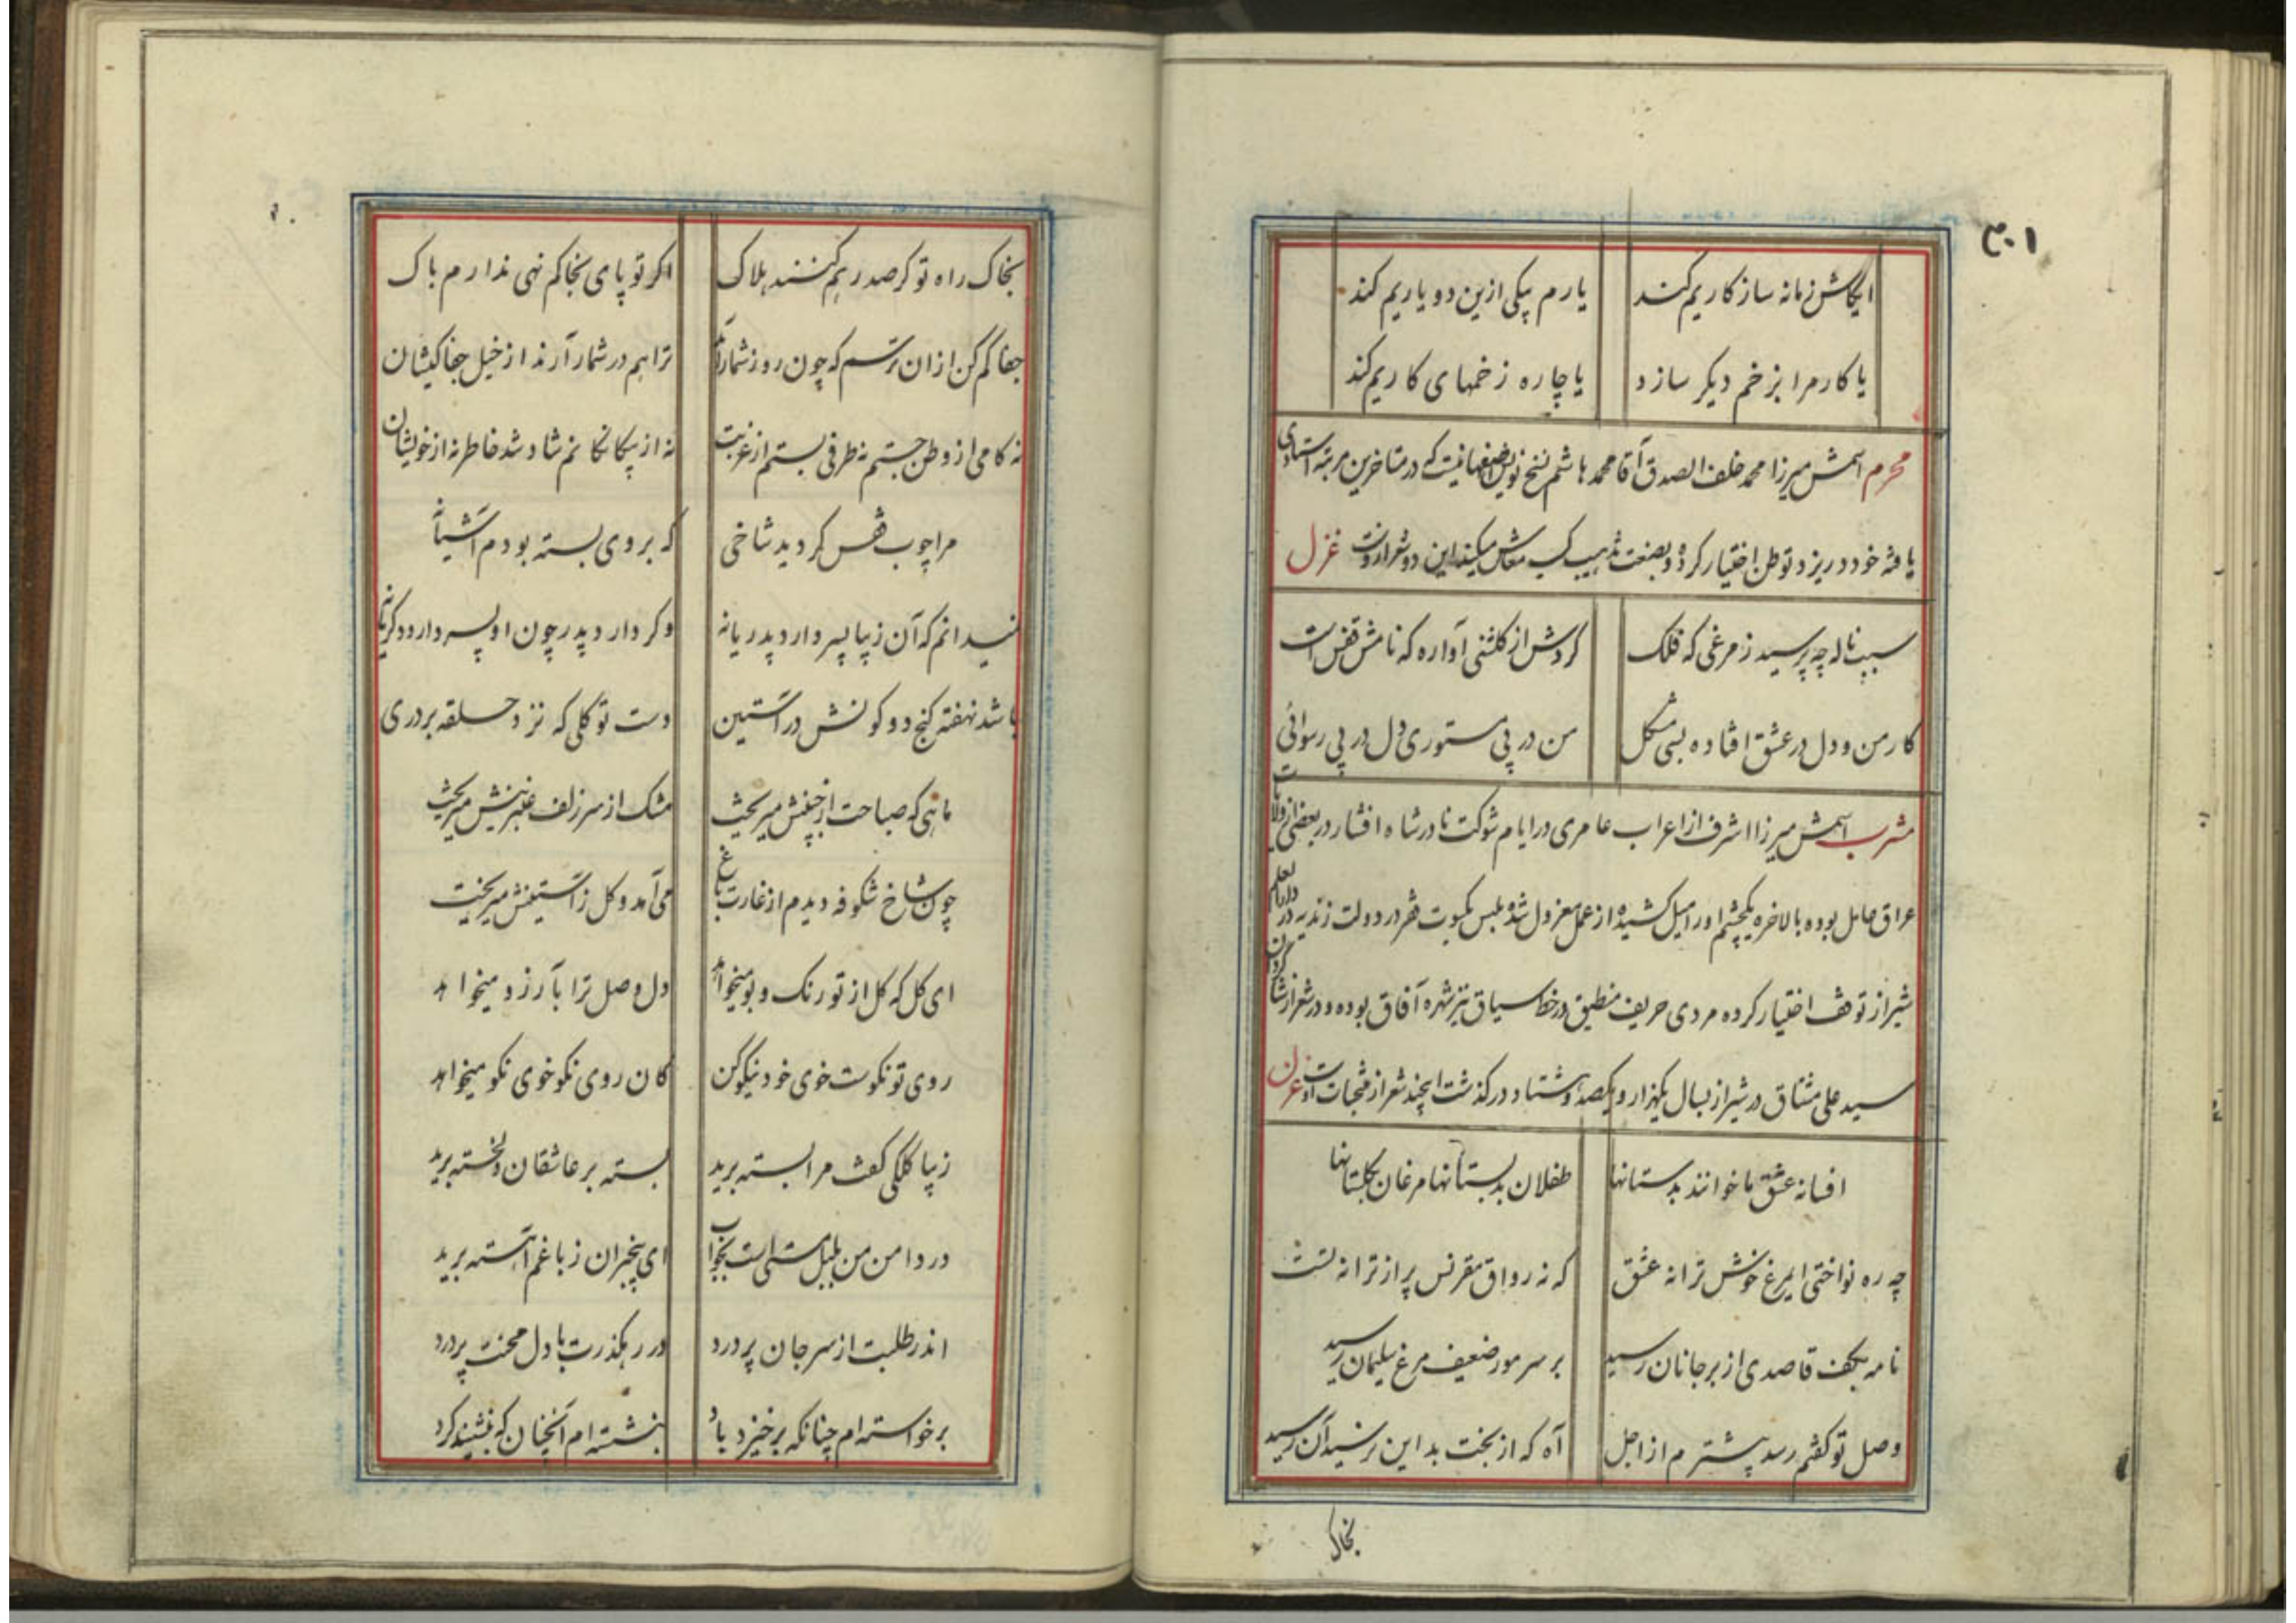 ۳۰۱
ایکاش زمانه سازکاریم کند یارم یکی ازین دو یاریم کند
یا کار مرا بزخم دیکر سازد یا چاره زخمهای کاریم کند
محرم اسمش میرزا محمد خلف الصدق آقا محمد هاشم نسخ نویس اصفهانیست که در متاخرین مرتبه استادی
یافته خود در یزد توطن اختیار کرده و بصنعت تذهیب کسب معاش میکند این دو شعر ازوست غزل
سبب ناله چه پرسید ز مرغی که فلک کردش از کلشنی آواره که نامش قفس است
کار من و دل در عشق افتاده بسی مشکل من در پی مستوری دل در پی رسوائی
مشرب اسمش میرزا اشرف از اعراب عامری در ایام شوکت نادرشاه افشار در بعضی از ولایات
عراق عامل بوده بالاخره یکچشم او را میل کشیده از عمل معزول شده ملبس بکسوت فقر در دولت زندیه در دارالعلم
شیراز توقف اختیار کرده مردی حریف منطیق در خط سیاق نیز شهره آفاق بوده و در شعر از شاکردان
سید علی مشتاق در شیراز بسال یکهزار و یکصد و هشتاد درکذشت اینچند شعر از منتخبات اوست غزل
افسانه عشق ما خوانند بدستانها طفلان بدبستانها مرغان بکلستانها
چه ره نواختی ایمرغ خوش ترانه عشق که نه رواق مقرنس پر از ترانه تست
نامه بکف قاصدی از بر جانان رسید بر سر مور ضعیف مرغ سلیمان رسید
وصل تو کفتم رسد پیشترم از اجل آه که از بخت بد این نرسید آن رسید
بخاک
بخاک راه تو کر صد رهم کنند هلاک اکر تو پای بخاکم نهی ندارم باک
جفا کم کن از آن ترسم که چون روز شمار آید ترا هم در شمار آرند از خیل جفا کیشان
نه کامی از وطن جستم نه طرفی بستم از غربت نه از بیکانکانم شاد شد خاطر نه از خویشان
مرا چوب قفس کردید شاخی که بر وی بسته بودم آشیانه
نمیدانم که آن زیبا پسر دارد پدر یا نه و کر دارد پدر چون او پسر دارد دکر یا نه
باشد نهفته کنج دو کونش در آستین دست توکلی که نزد حلقه بر دری
ماهی که صباحت از جبینش میریخت مشک از سر زلف عنبرینش میریخت
چون شاخ شکوفه دیدم از غارت باغ می آمد و کل ز آستینش میریخت
ای کل که کل از تو رنک و بو میخواهد دل وصل ترا بآرزو میخواهد
روی تو نکوست خوی خود نیکو کن کان روی نکو خوی نکو میخواهد
زیبا کلکی کفت مرا بسته برید بسته بر عاشقان دلخسته برید
در دامن من بلبل مستی است بخواب ای بیخبران ز باغم آهسته برید
اندر طلبت از سر جان پر درد در رهکذرت با دل محنت پرورد
برخواسته ام چنانکه برخیزد باد بنشسته ام آنچنان که بنشیند کرد